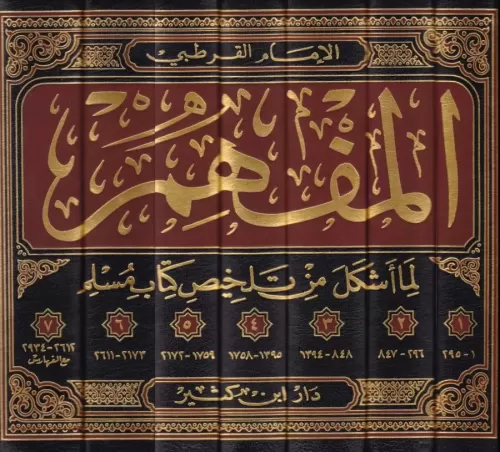 الإمام القرطبي
المفهم
لما أشكل من تلخيص كتاب مسلم
١ ٢ ٣ ٤ ٥ ٦ ٧
١-٢٩٥ ٢٩٦-٨٤٧ ٨٤٨-١٣٩٤ ١٣٩٥-١٧٥٨ ١٧٥٩-٢١٧٢ ٢١٧٣-٢٦١١ ٢٦١٢-٢٩٣٤
مع الفهارس
دار ابن كثير